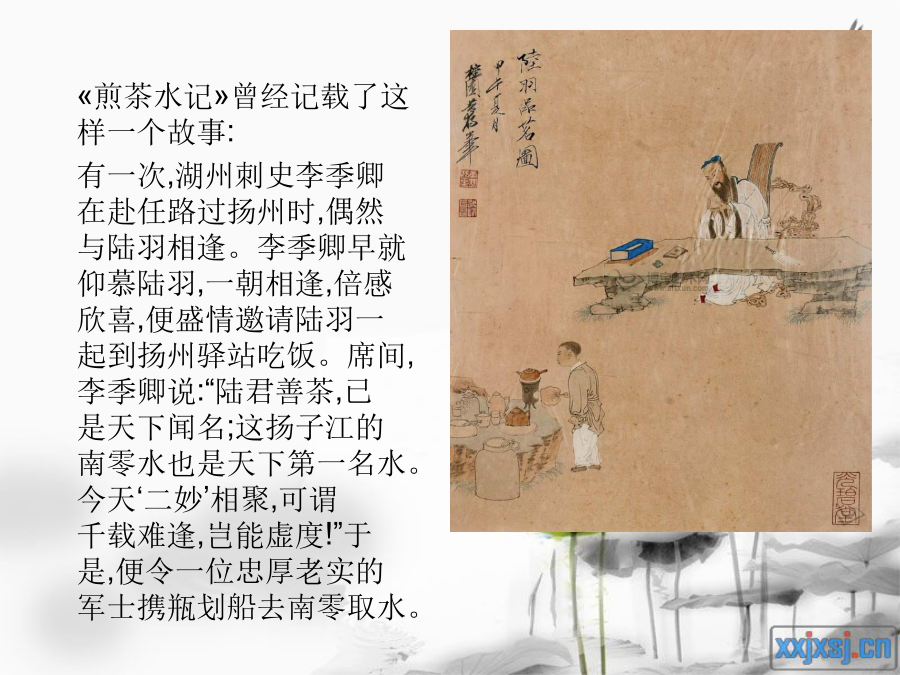 «煎茶水记»曾经记载了这
样一个故事:
有一次,湖州刺史李季卿
在赴任路过扬州时,偶然
与陆羽相逢。李季卿早就
仰慕陆羽,一朝相逢,倍感
欣喜,便盛情邀请陆羽一
起到扬州驿站吃饭。席间,
李季卿说:“陆君善茶,已
是天下闻名;这扬子江的
南零水也是天下第一名水。
今天‘二妙’相聚,可谓
千载难逢,岂能虚度!”于
是,便令一位忠厚老实的
军士携瓶划船去南零取水。
陸羽品茗圖
甲午夏月
xxjxsj.cn